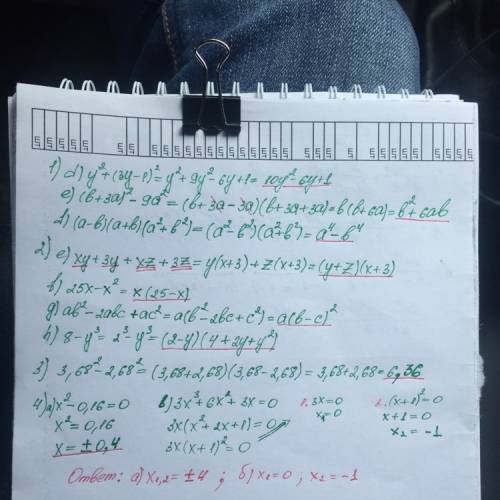 1) d) y² + (3y-1)² = y² + 9y² - 6y + 1 = 10y² - 6y + 1
e) (b+3a)² - 9a² = (b+3a-3a)(b+3a+3a) = b(b+6a) = b² + 6ab
f) (a-b)(a+b)(a²+b²) = (a²-b²)(a²+b²) = a⁴ - b⁴
2) e) xy + 3y + xz + 3z = y(x+3) + z(x+3) = (y+z)(x+3)
b) 25x - x² = x(25-x)
g) ab² - 2abc + ac² = a(b² - 2bc + c²) = a(b-c)²
h) 8 - y³ = 2³ - y³ = (2-y)(4+2y+y²)
3) 3,68² - 2,68² = (3,68+2,68)(3,68-2,68) = 3,68+2,68 = 6,36
4) a) x² - 0,16 = 0 b) 3x³ + 6x² + 3x = 0 1. 3x = 0 2. (x+1)² = 0
x² = 0,16 3x(x² + 2x + 1) = 0 x₁ = 0 x + 1 = 0
x = ± 0,4 3x(x+1)² = 0 x₂ = -1
Ответ: а) x₁,₂ = ± 4 ; б) x₁ = 0 ; x₂ = -1